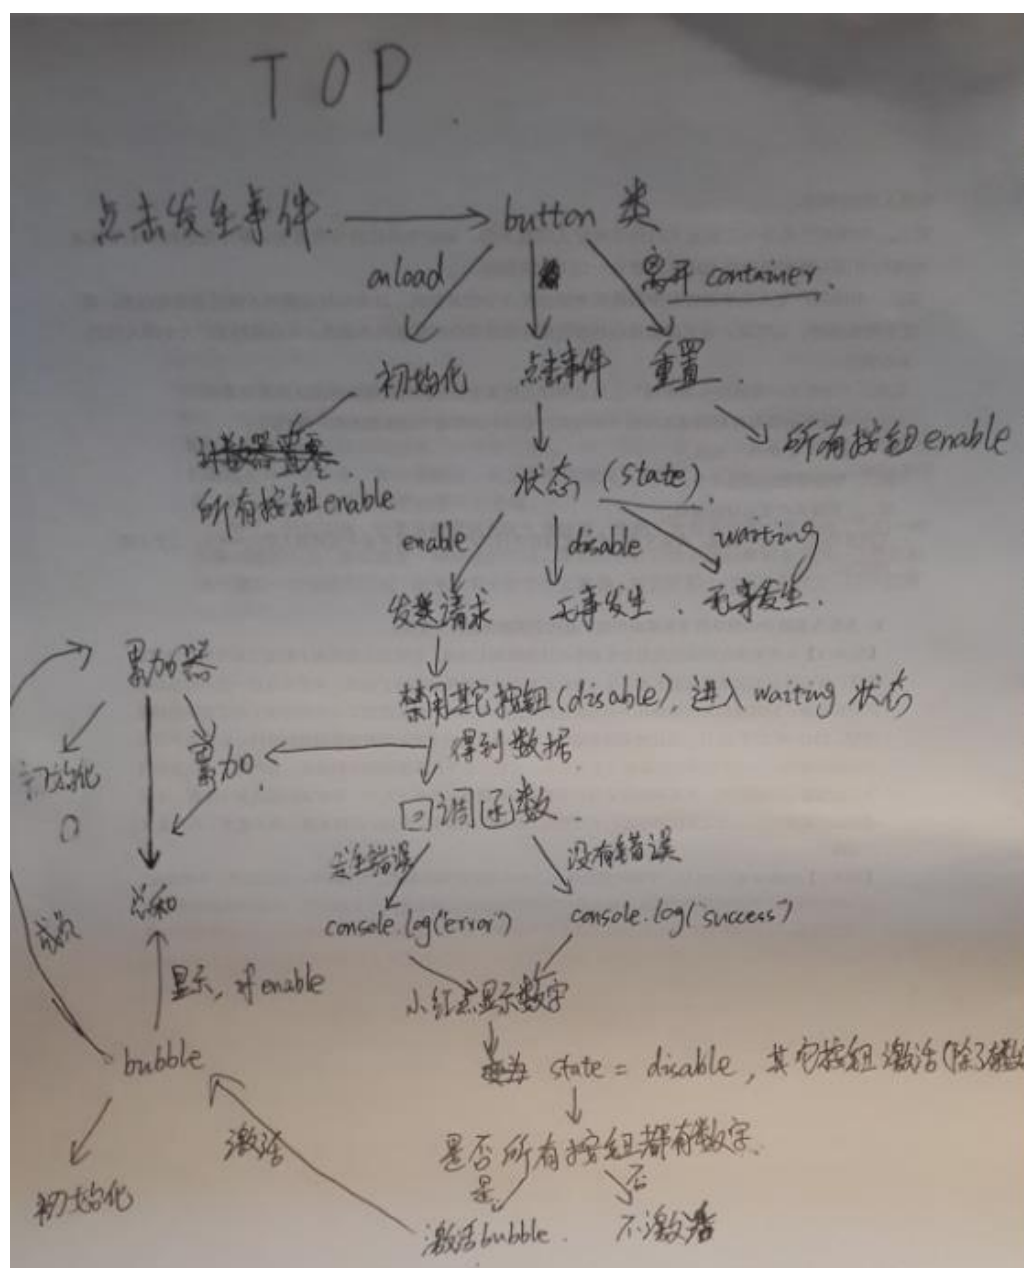 TOP
点击发生事件. → button 类
onload
离开 container.
初始化 点击事件 重置.
计数器置零.
所有按钮 enable
所有按钮 enable
状态 (state).
enable disable waiting
发送请求 无事发生. 无事发生.
累加器
禁用其它按钮(disable), 进入 waiting 状态
累加. 得到数据.
初始化
0
回调函数.
发生错误 没有错误
总和
console.log('error') console.log('success')
成员
显示, if enable
小红点显示数字
bubble
变为 state = disable, 其它按钮激活(除了有数
激活
是否所有按钮都有数字.
是 否
初始化
激活bubble. 不激活